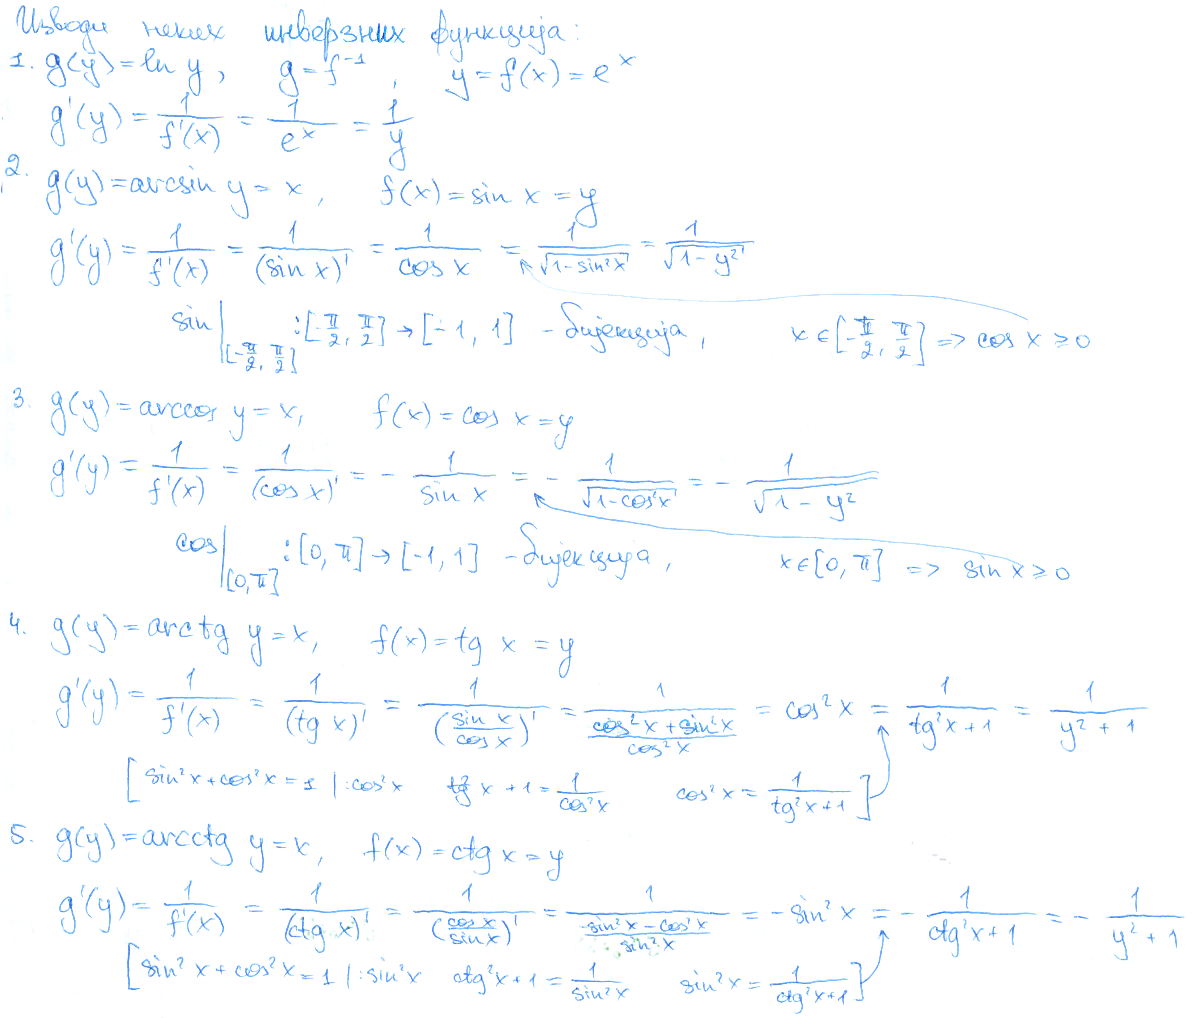 Изводи неких инверзних функција:
1. g(y) = ln y, g = f⁻¹, y = f(x) = eˣ
g'(y) = 1/f'(x) = 1/eˣ = 1/y
2. g(y) = arcsin y = x, f(x) = sin x = y
g'(y) = 1/f'(x) = 1/(sin x)' = 1/cos x = 1/√(1-sin²x) = 1/√(1-y²)
sin|[-π/2, π/2] : [-π/2, π/2] → [-1, 1] - бијекција, x ∈ [-π/2, π/2] => cos x ≥ 0
3. g(y) = arccos y = x, f(x) = cos x = y
g'(y) = 1/f'(x) = 1/(cos x)' = - 1/sin x = - 1/√(1-cos²x) = - 1/√(1-y²)
cos|[0, π] : [0, π] → [-1, 1] - бијекција, x ∈ [0, π] => sin x ≥ 0
4. g(y) = arctg y = x, f(x) = tg x = y
g'(y) = 1/f'(x) = 1/(tg x)' = 1/(sin x/cos x)' = 1/((cos²x + sin²x)/cos²x) = cos²x = 1/(tg²x + 1) = 1/(y² + 1)
[sin²x + cos²x = 1 |: cos²x tg²x + 1 = 1/cos²x cos²x = 1/(tg²x + 1)]
5. g(y) = arcctg y = x, f(x) = ctg x = y
g'(y) = 1/f'(x) = 1/(ctg x)' = 1/(cos x/sin x)' = 1/((-sin²x - cos²x)/sin²x) = - sin²x = - 1/(ctg²x + 1) = - 1/(y² + 1)
[sin²x + cos²x = 1 |: sin²x ctg²x + 1 = 1/sin²x sin²x = 1/(ctg²x + 1)]